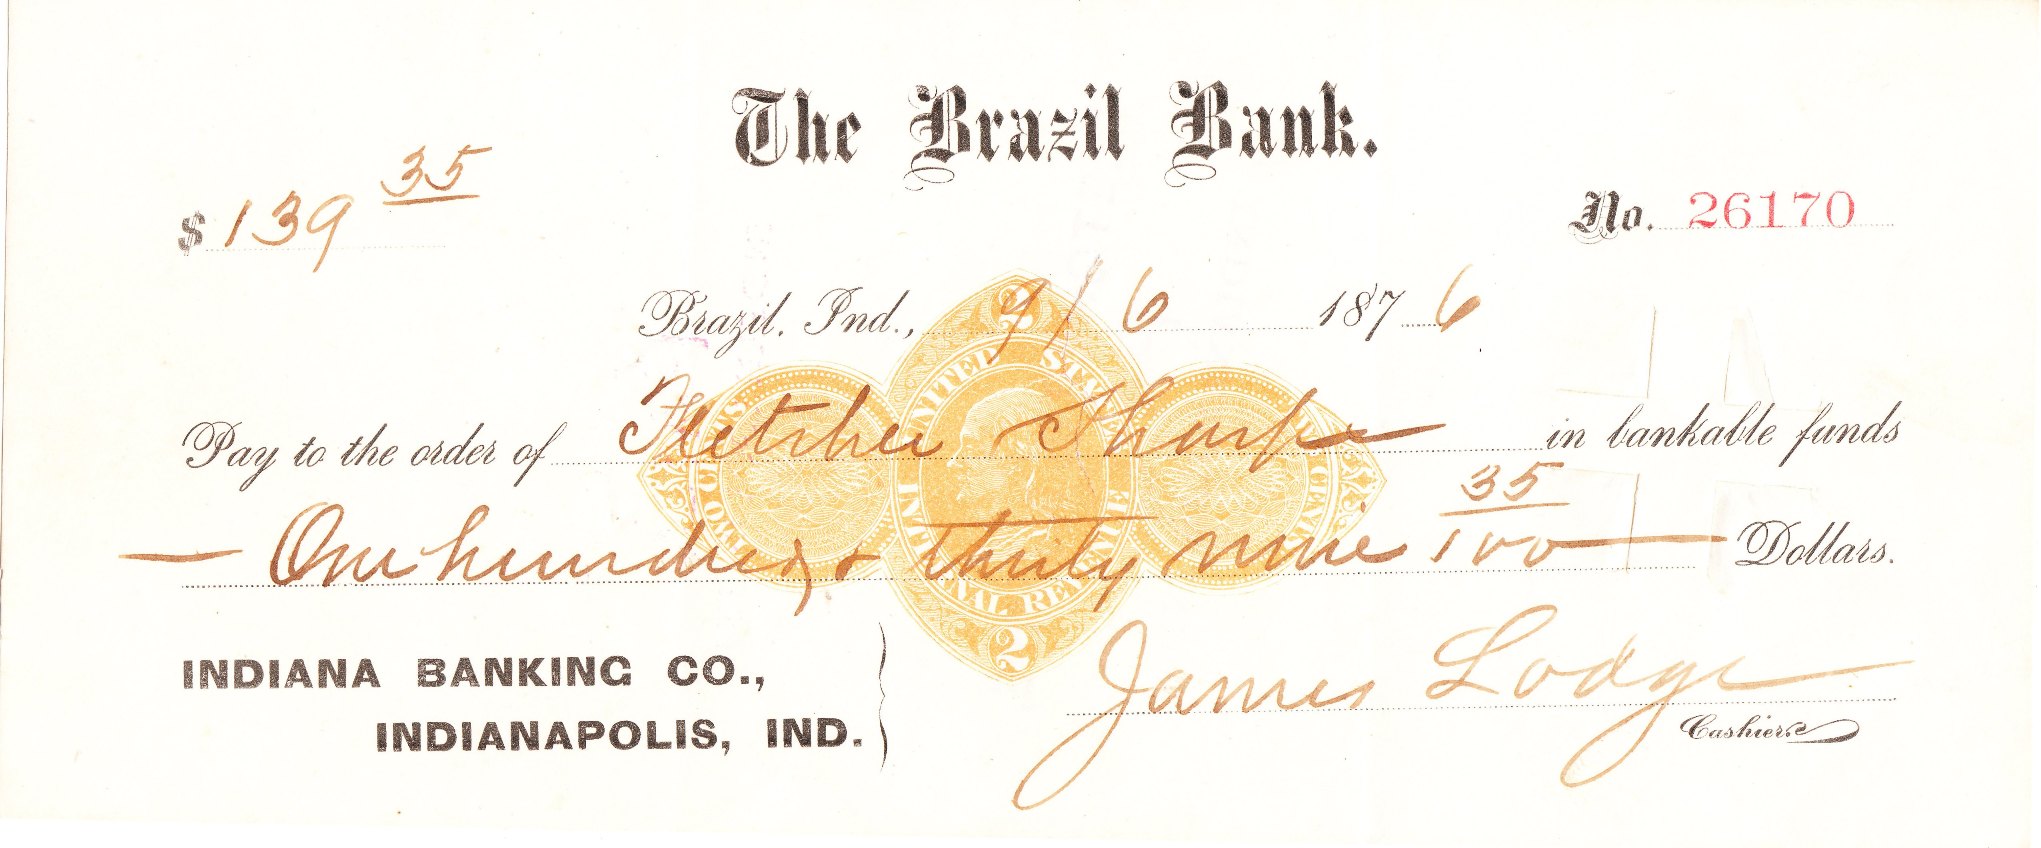 The Brazil Bank.
$ 139 35
No. 26170
Brazil, Ind., 9/6 1876
Pay to the order of Fletcher Sharpe in bankable funds
One hundred & thirty nine 35/100 Dollars.
2
UNITED STATES
INTERNAL REVENUE
TWO CENTS
TWO CENTS
2
INDIANA BANKING CO.,
INDIANAPOLIS, IND.
James Lodge
Cashier